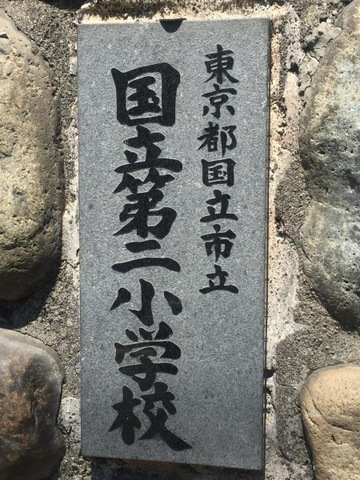 東京都国立市立
国立第二小学校